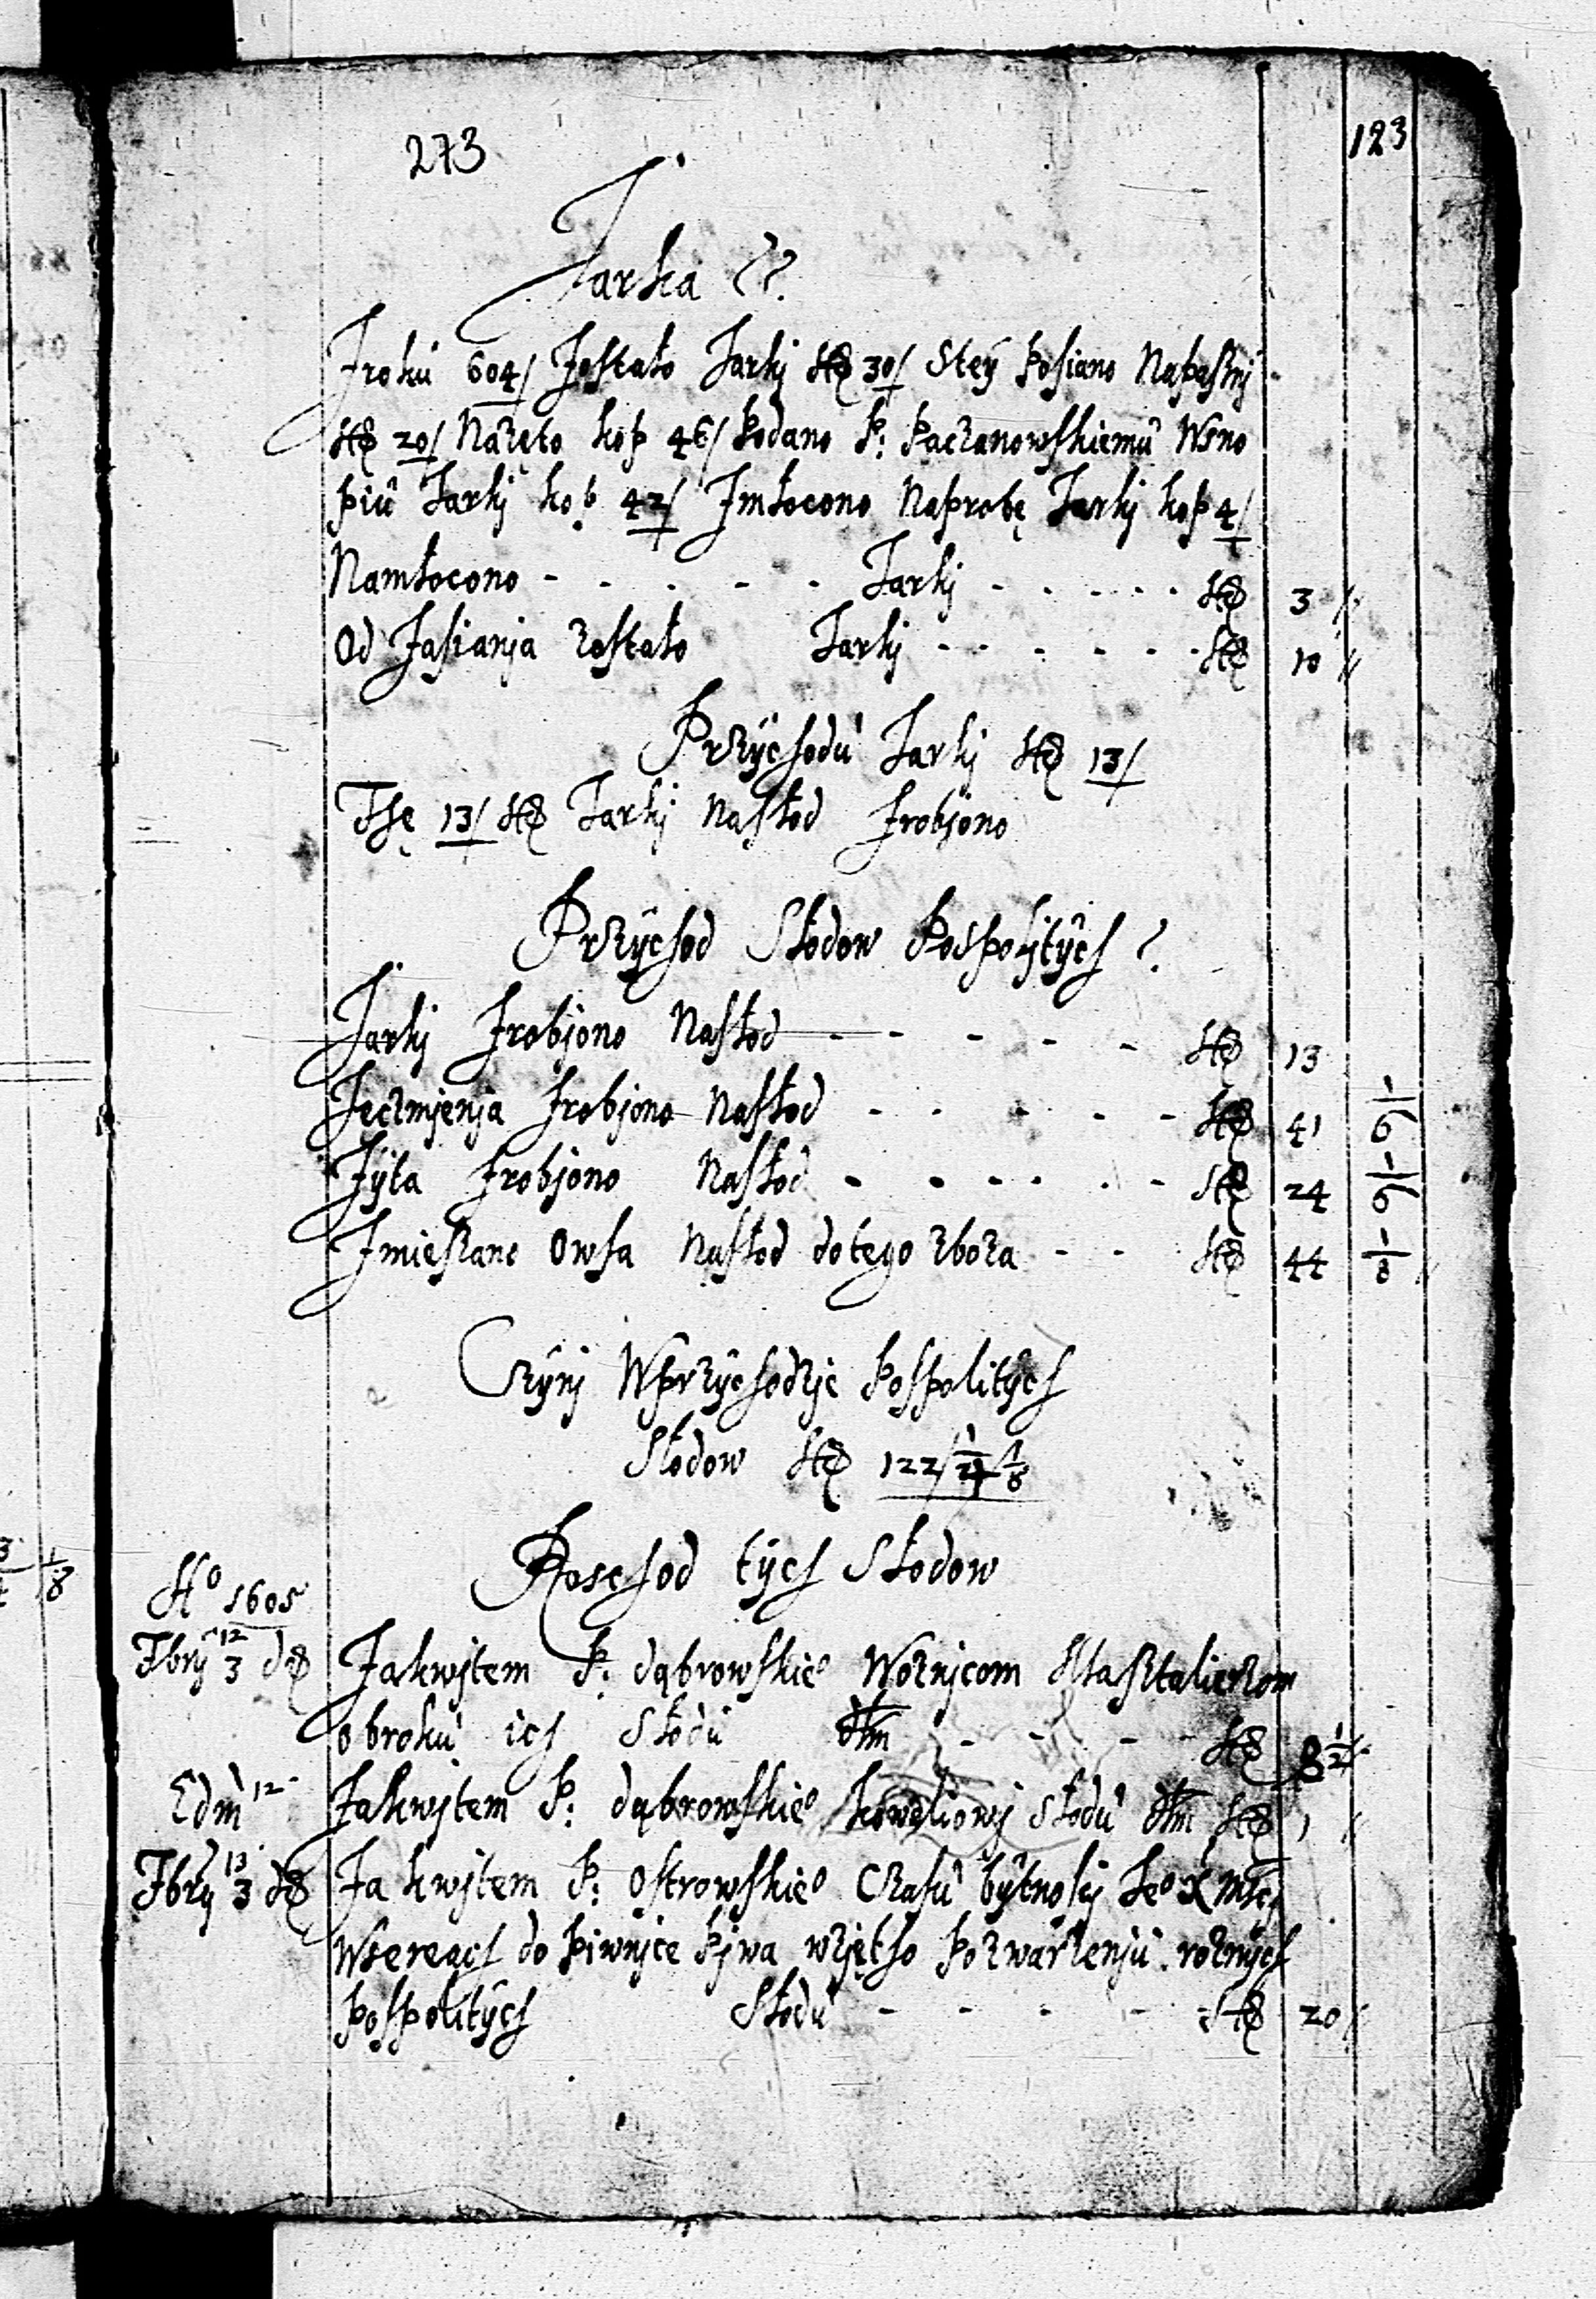 273
123
Jarka
Zroku 604/ Zostało Jarkj 30/ Stey Posiano Napaszny
20/ Nażęto kop 46/ Podano P: Paczanowskiemu Wsno
piu Jarkj kop 42/ Zmłocono Naprobę Jarkj kop 4/
Namłocono - - - - - Jarkj - - - - - 3
Od Zasiania zostało Jarkj - - - - - - 10
Przychodu Jarkj 13/
Tsę 13/ Jarkj Nasłod Zrobjono
Przychod Słodow Pospolitych
Jarkj Zrobjono Nasłod - - - - - 13
Jęczmjenja Zrobjono Nasłod - - - - - 41
Zyta Zrobjono Nasłod - - - - - - 24
Zmieszano Owsa Nasłod dotego zboza - - 44 1/8
Czynj Wprzychodzje Pospolitych
Słodow 122/
Roschod tych Słodow
Ao 1605
Zakwjtem P: dąbrowskieo Woznjcom Masztalierzom
obroku ich Słodu - - - - 8 1/2
Edm 12 Zakwjtem P: dąbrowskieo Słodu 1
Zakwjtem P: Ostrowskieo Czasu bytnoscj Jeo X Mscj
do Piwnjce Pjwa wzjętho rożnych
Pospolitych Słodu - - - - - 20